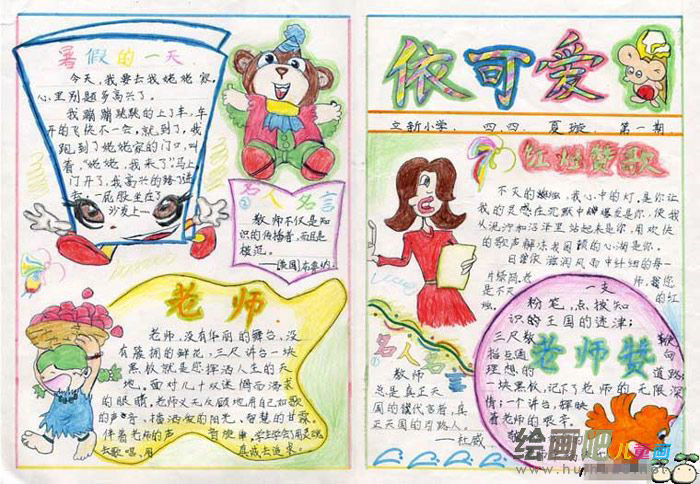 暑假的一天
今天,我要去我姥姥家,
心里别题多高兴了。
我蹦蹦跳跳的上了车,车
开的飞快不一会,就到了,我
跑到了姥姥家的门口,叫
着,"姥姥,我来了"马上
门开了,我高兴的
一屁股坐在了
沙发上…
名人名言
②
教师不仅是知
识的传播者,而且是
模范。
老师
老师,没有华丽的舞台,没
有簇拥的鲜花,三尺讲台一块
黑板就是您挥洒人生的天
地。面对几十双迷惘而渴求
的眼睛,老师义无反顾地用自己如歌
的声音,挥洒出阳光,智慧的甘霖。
伴着老师的声
去歌唱,用
真诚去追求。
依可爱
立新小学、四、四、夏璇 第一期
红烛赞歌
不灭的蜡烛,我心中的灯,是你让
我的灵感在沉默中爆发是你,使我
从泥泞和沼泽里站起来是你,用欢快
的歌声解冻我困顿的心湖是你。
片绿洲,老
是不灭
的红
烛。
老师赞
一支
粉笔,点拨知
识的王国的迷津;
三尺教
理想的
道路
一块黑板,记下了老师的无限深
情;一个讲台,辉映
着老师的艰辛。
名人名言
①
教师
总是真正天
国的代言者,真
正天国的引路人。
—杜威
绘画吧
儿童画